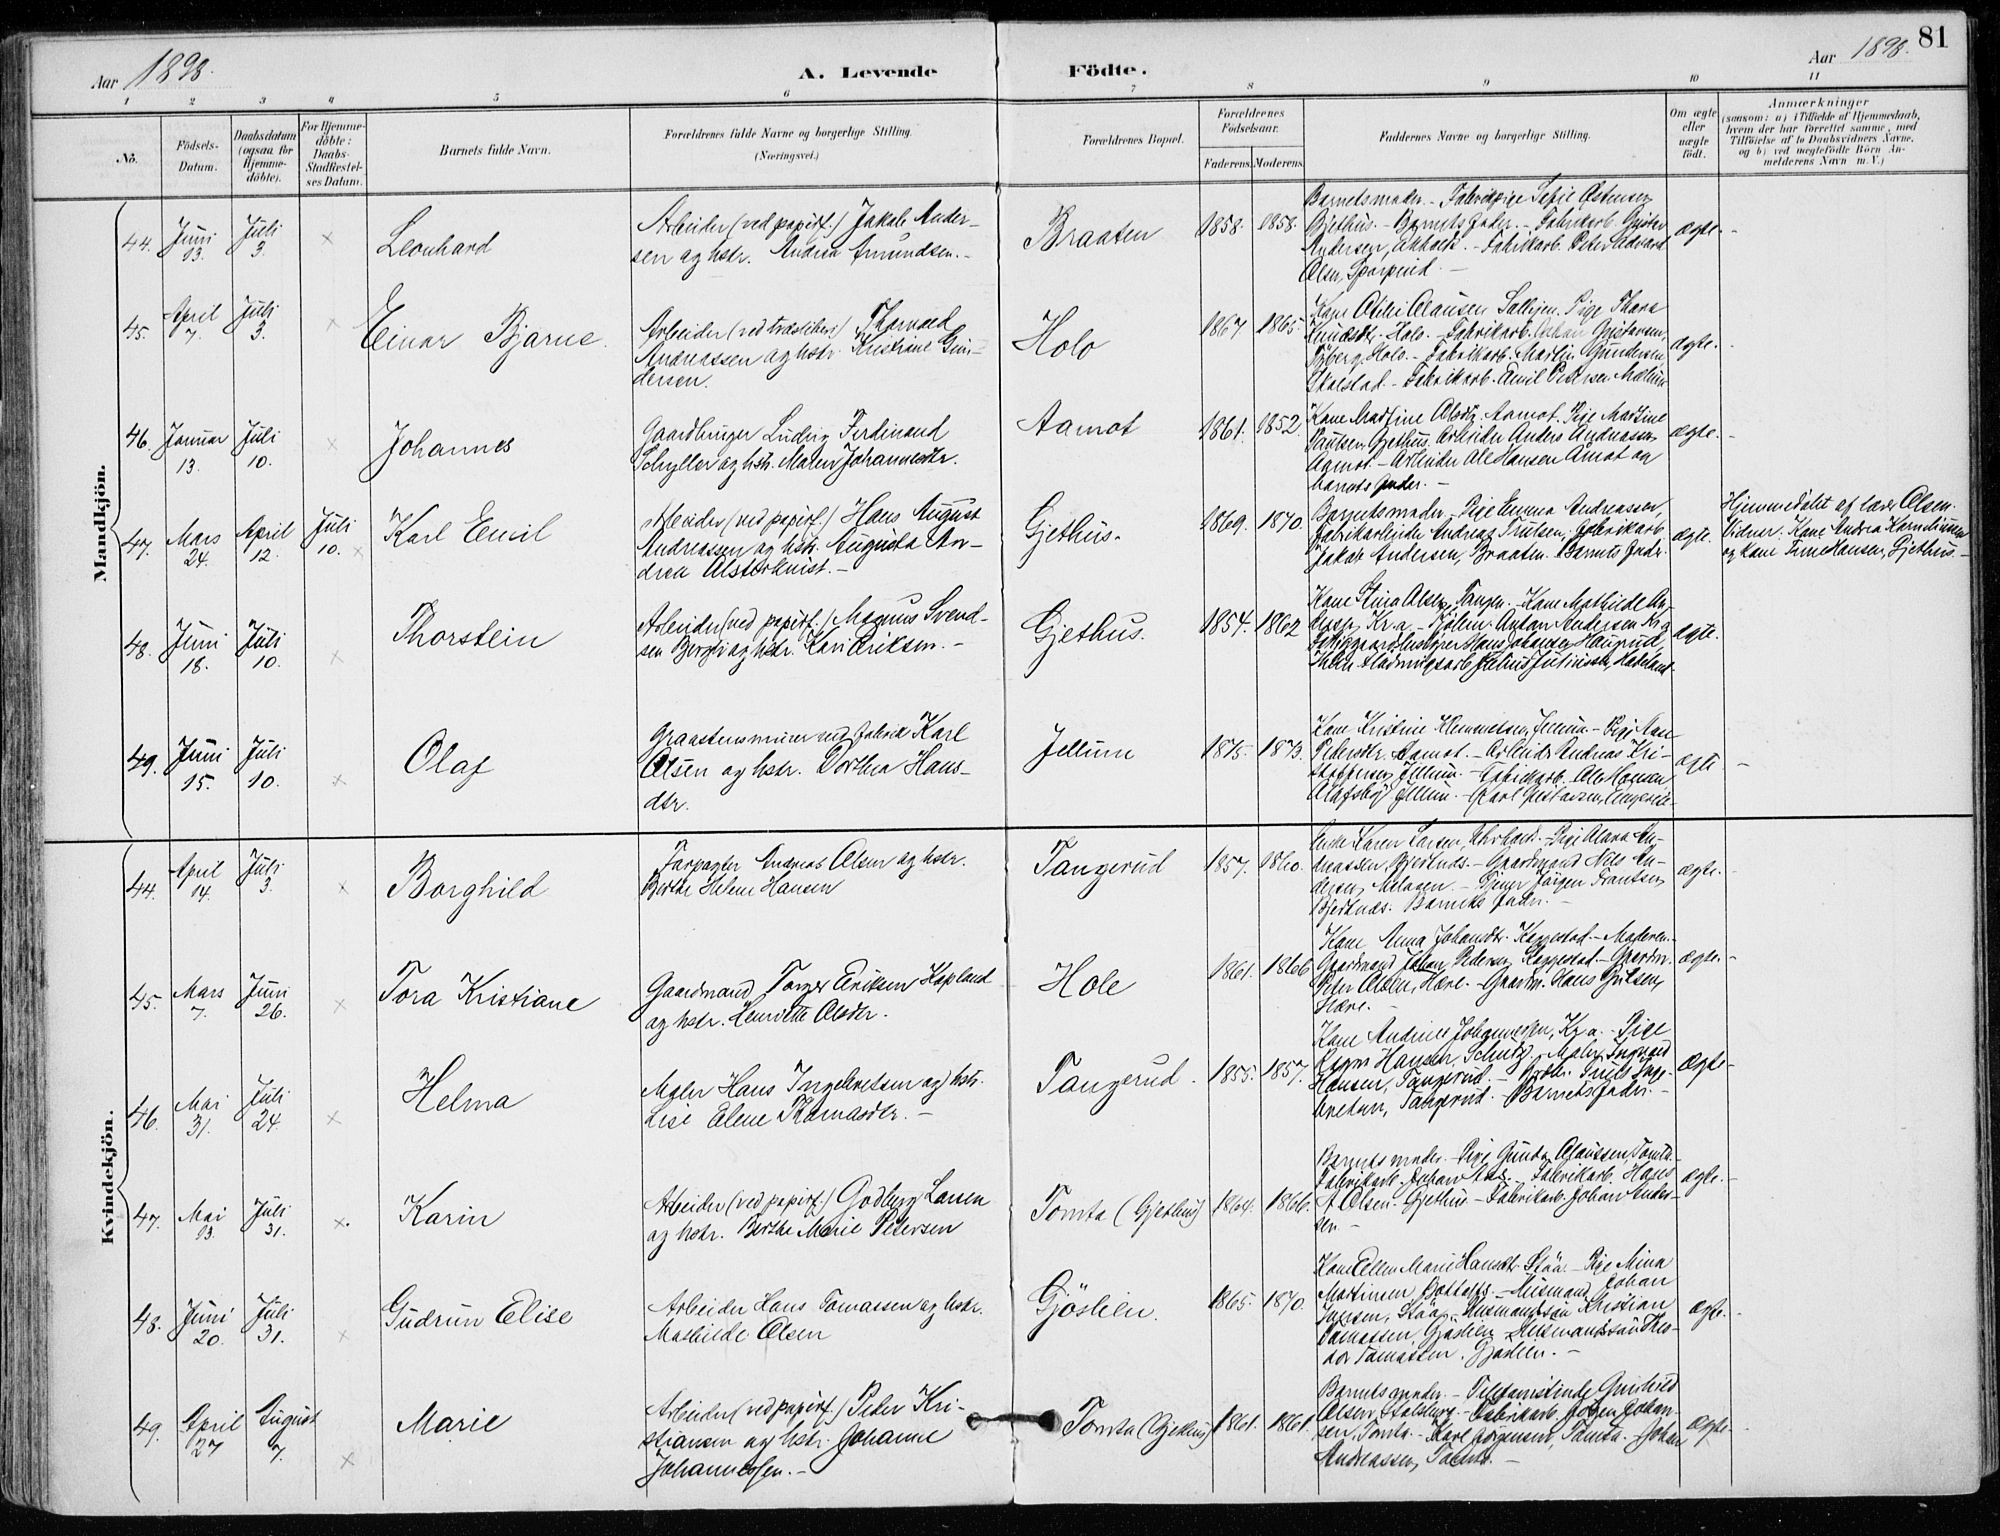 81
Aar 1898.
A. Levende
Födte.
Aar 1898.
1 2 3 4 5 6 7 8 9 10 11
No.
Födsels-
Datum.
Daabsdatum
(ogsaa for
Hjemme-
döbte).
For Hjemme-
döbte:
Daabs-
Stadfæstel-
ses Datum.
Barnets fulde Navn.
Forældrenes fulde Navne og borgerlige Stilling.
(Næringsvei.)
Forældrenes Bopæl.
Forældrenes
Födselsaar.
Faderens. Moderens.
Faddernes Navne og borgerlige Stilling.
Om ægte
eller
uægte
födt.
Anmærkninger
(saasom: a) i Tilfælde af Hjemmedaab,
hvem der har forrettet samme, med
Tilföielse af to Daabsvidners Navne,
og b) ved uægtefödte Börn An-
melderens Navn m. V.)
Mandkjön.
44. Juni 13. Juli 3. × Leonhard
Arbeider (ved papirf.) Jakob Ander-
sen og hstr. Andrea Amundsen.-
Braaten 1858. 1858.
Barnets moder.- Fabrikpige
Gjethus.- Barnets fader.- Fabrikarb.
Andersen, - Fabrikarb. Peter Edvard
Olsen,
ægte.-
45. April 7. Juli 3. × Einar Bjarne.
Arbeider (ved træsliberi) Thorvald
Andreassen og hstr. Kristiane Gun-
dersen.
Holo 1867 1865.
Kone Clausen Pige Thora
Holo.- Fabrikarb. Gustavsen,
Holo.- Fabrikarb. Martin Gundersen
Skalstad.- Fabrikarb. Emil Petersen
ægte.-
46. Januar 13. Juli 10. × Johannes
Gaardbruger Ludvig Ferdinand
Schyller og hstr. Maren Johannesdtr.
Aamot 1861. 1852.
Kone Martine Olsdtr. Aamot. Pige Martine
Gjethus. Arbeider Anders Andreassen
Aamot.- Arbeider Ole Hansen Åmot og
barnets fader.-
ægte.-
47. Mars 24. April 12. Juli 10. × Karl Emil
Arbeider (ved papirf.) Hans August
Andreassen og hstr. Augusta An-
drea Alsterkvist.-
Gjethus. 1869. 1870.
Barnets moder. Pige Emma Andreassen,
Fabrikarbeider Andreas Trulsen, Fabrikarb.
Jakob Andersen, Braaten. Barnets fader.
ægte.
Hjemmedöbt af lærer Olsen.
Vidner: Kone Andrea Korneliussen
og kone Trine Hansen, Gjethus.-
48. Juni 18. Juli 10. × Thorstein
Arbeider (ved papirf.) Magnus Svend-
sen Berglie og hstr. Kari Eriksen.-
Gjethus. 1854. 1862
Kone Stina Olsen, Tangen.- Kone Mathilde An-
dersen, Kr.a.- Anton Andersen Kr.a
Hans Johansen Haugrud,
Hadeland.
ægte.
49. Juni 15. Juli 10. × Olaf
Graastensmurer ved fabrik Karl
Olsen og hstr. Dorthea Hans-
dtr.
Jellum 1875. 1873.
Kone Kristine Klemmetsen, Jellum.- Pige
Pedersdtr. Aamot.- Arbeider Andreas Kri-
stoffersen, Jellum.- Fabrikarb. Ole Hansen
Olafsby, Jellum.- Karl Gustavsen,
ægte -
Kvindekjön.
44. April 14. Juli 3. × Borghild
Forpagter Andreas Olsen og hstr.
Berthe Helene Hansen
Tangerud 1857. 1860.
Enke Karen Larsen, - Pige Clara An-
dreassen, Bjertnes.- Gaardmand Nils An-
dersen, - Gjever Jörgen Frantsen,
Bjertnæs. Barnets fader.-
ægte.-
45. Mars 7. Juni 26. × Tora Kristiane
Gaardmand Torger Eriksen Kopland
og hstr. Henriette Olsdtr.
Hole 1861. 1866
Kone Anna Johansdtr. Kaggestad.- Moderen.-
Gaardmand Johan Pedersen, Kaggestad.- Gaardm.
Peter Olsen, Hære.- Gaardm. Hans
Hære.-
ægte.-
46. Mai 31. Juli 24. × Helma
Maler Hans Ingebretsen og hstr.
Lise Elene Thomasdtr.-
Tangerud. 1855. 1857.
Kone Andrine Johannessen, Kr.a.- Pige
Hansen, Maler Ingvald
Hansen, Tangerud.- Inge-
bretsen, Tangerud.- Barnets fader.-
ægte-
47. Mai 13. Juli 31. ×. Karin
Arbeider (ved papirf.) Godberg Larsen
og hstr. Berthe Marie Petersen
Tomta (Gjethus) 1864. 1866.
Barnets moder.- Pige Gunda Claussen, Tomta
Fabrikarb. Johan - Fabrikarb. Hans
A. Olsen. Gjethus - Fabrikarb. Johan Ander-
sen.-
ægte.-
48. Juni 20. Juli 31. × Gudrun Elise
Arbeider Hans Tomassen og hstr.
Mathilde Olsen
Gjöslien. 1865. 1870.
Kone Ellen Marie Hansdtr. Stöa.- Pige Mina
Martinsen - Husmand Johan
Iversen, Stöa, - Husmandssön Kristian
Tomassen, Gjöslien - Husmandssön Theo-
dor Tomassen, Gjöslien.-
ægte.-
49. April 27 August 7. × Marie
Arbeider (ved papirf.) Peter Kri-
stiansen og hstr. Johanne
Johannessen.-
Tomta (Gjethus) 1861. 1861.
Barnets moder.- Gunhild
Olsen - Fabrikarb. Jörgen Johan-
sen, Tomta - Karl Jörgensen, Tomta.- Johan
Andreassen, Tomta.-
ægte-